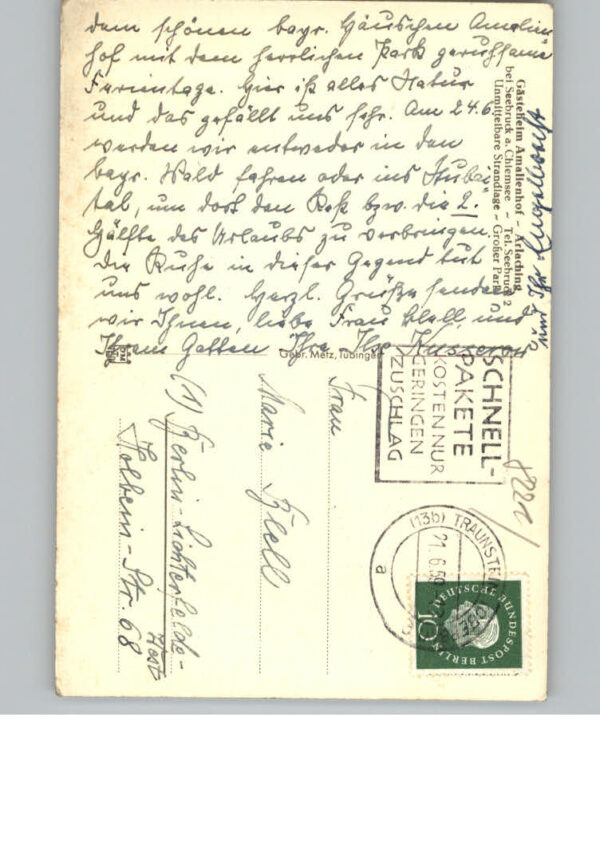 dem schönen bayr. Häuschen Amalien
hof mit dem herrlichen Park geruhsame
Ferientage. Hier ist alles Natur
und das gefällt uns sehr. Am 24.6.
werden wir entweder in den
bayr. Wald fahren oder ins
tal, um dort den Rest bzw. die 2.
Hälfte des Urlaubs zu verbringen.
Die Ruhe in dieser Gegend tut
uns wohl. Herzl. Grüße senden
wir Ihnen, liebe Frau Blell, und
Ihrem Gatten Ihre Ilse
Gästeheim Amalienhof - Arlaching
bei Seebruck a. Chiemsee - Tel. Seebruck 2
Unmittelbare Strandlage - Großer Park
Gebr. Metz, Tübingen
SCHNELL-
PAKETE
KOSTEN NUR
GERINGEN
ZUSCHLAG
8221
(13b) TRAUNSTEIN
21.6.59
a
DEUTSCHE BUNDESPOST BERLIN
10
Frau
Marie Blell
(1) Berlin-Lichterfelde-
West
Holbein-Str. 68